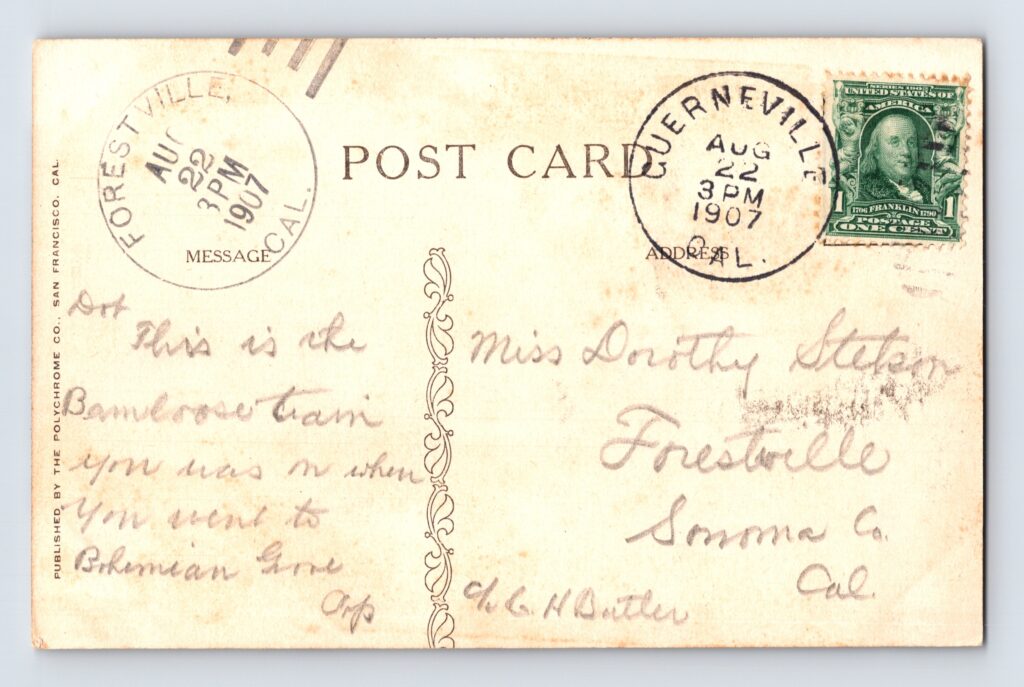 FORESTVILLE,
AUG
22
3 PM
1907
CAL.
POST CARD
GUERNEVILLE
AUG
22
3 PM
1907
CAL.
SERIES 1902
UNITED STATES OF
AMERICA
1706 FRANKLIN 1790
POSTAGE
1 ONE CENT 1
MESSAGE
ADDRESS
PUBLISHED BY THE POLYCHROME CO., SAN FRANCISCO. CAL.
Dot
This is the
Bamboose train
you was on when
you went to
Bohemian Grove
Miss Dorothy Stetson
Forestville
Sonoma Co.
Cal.
c/o C H Butler